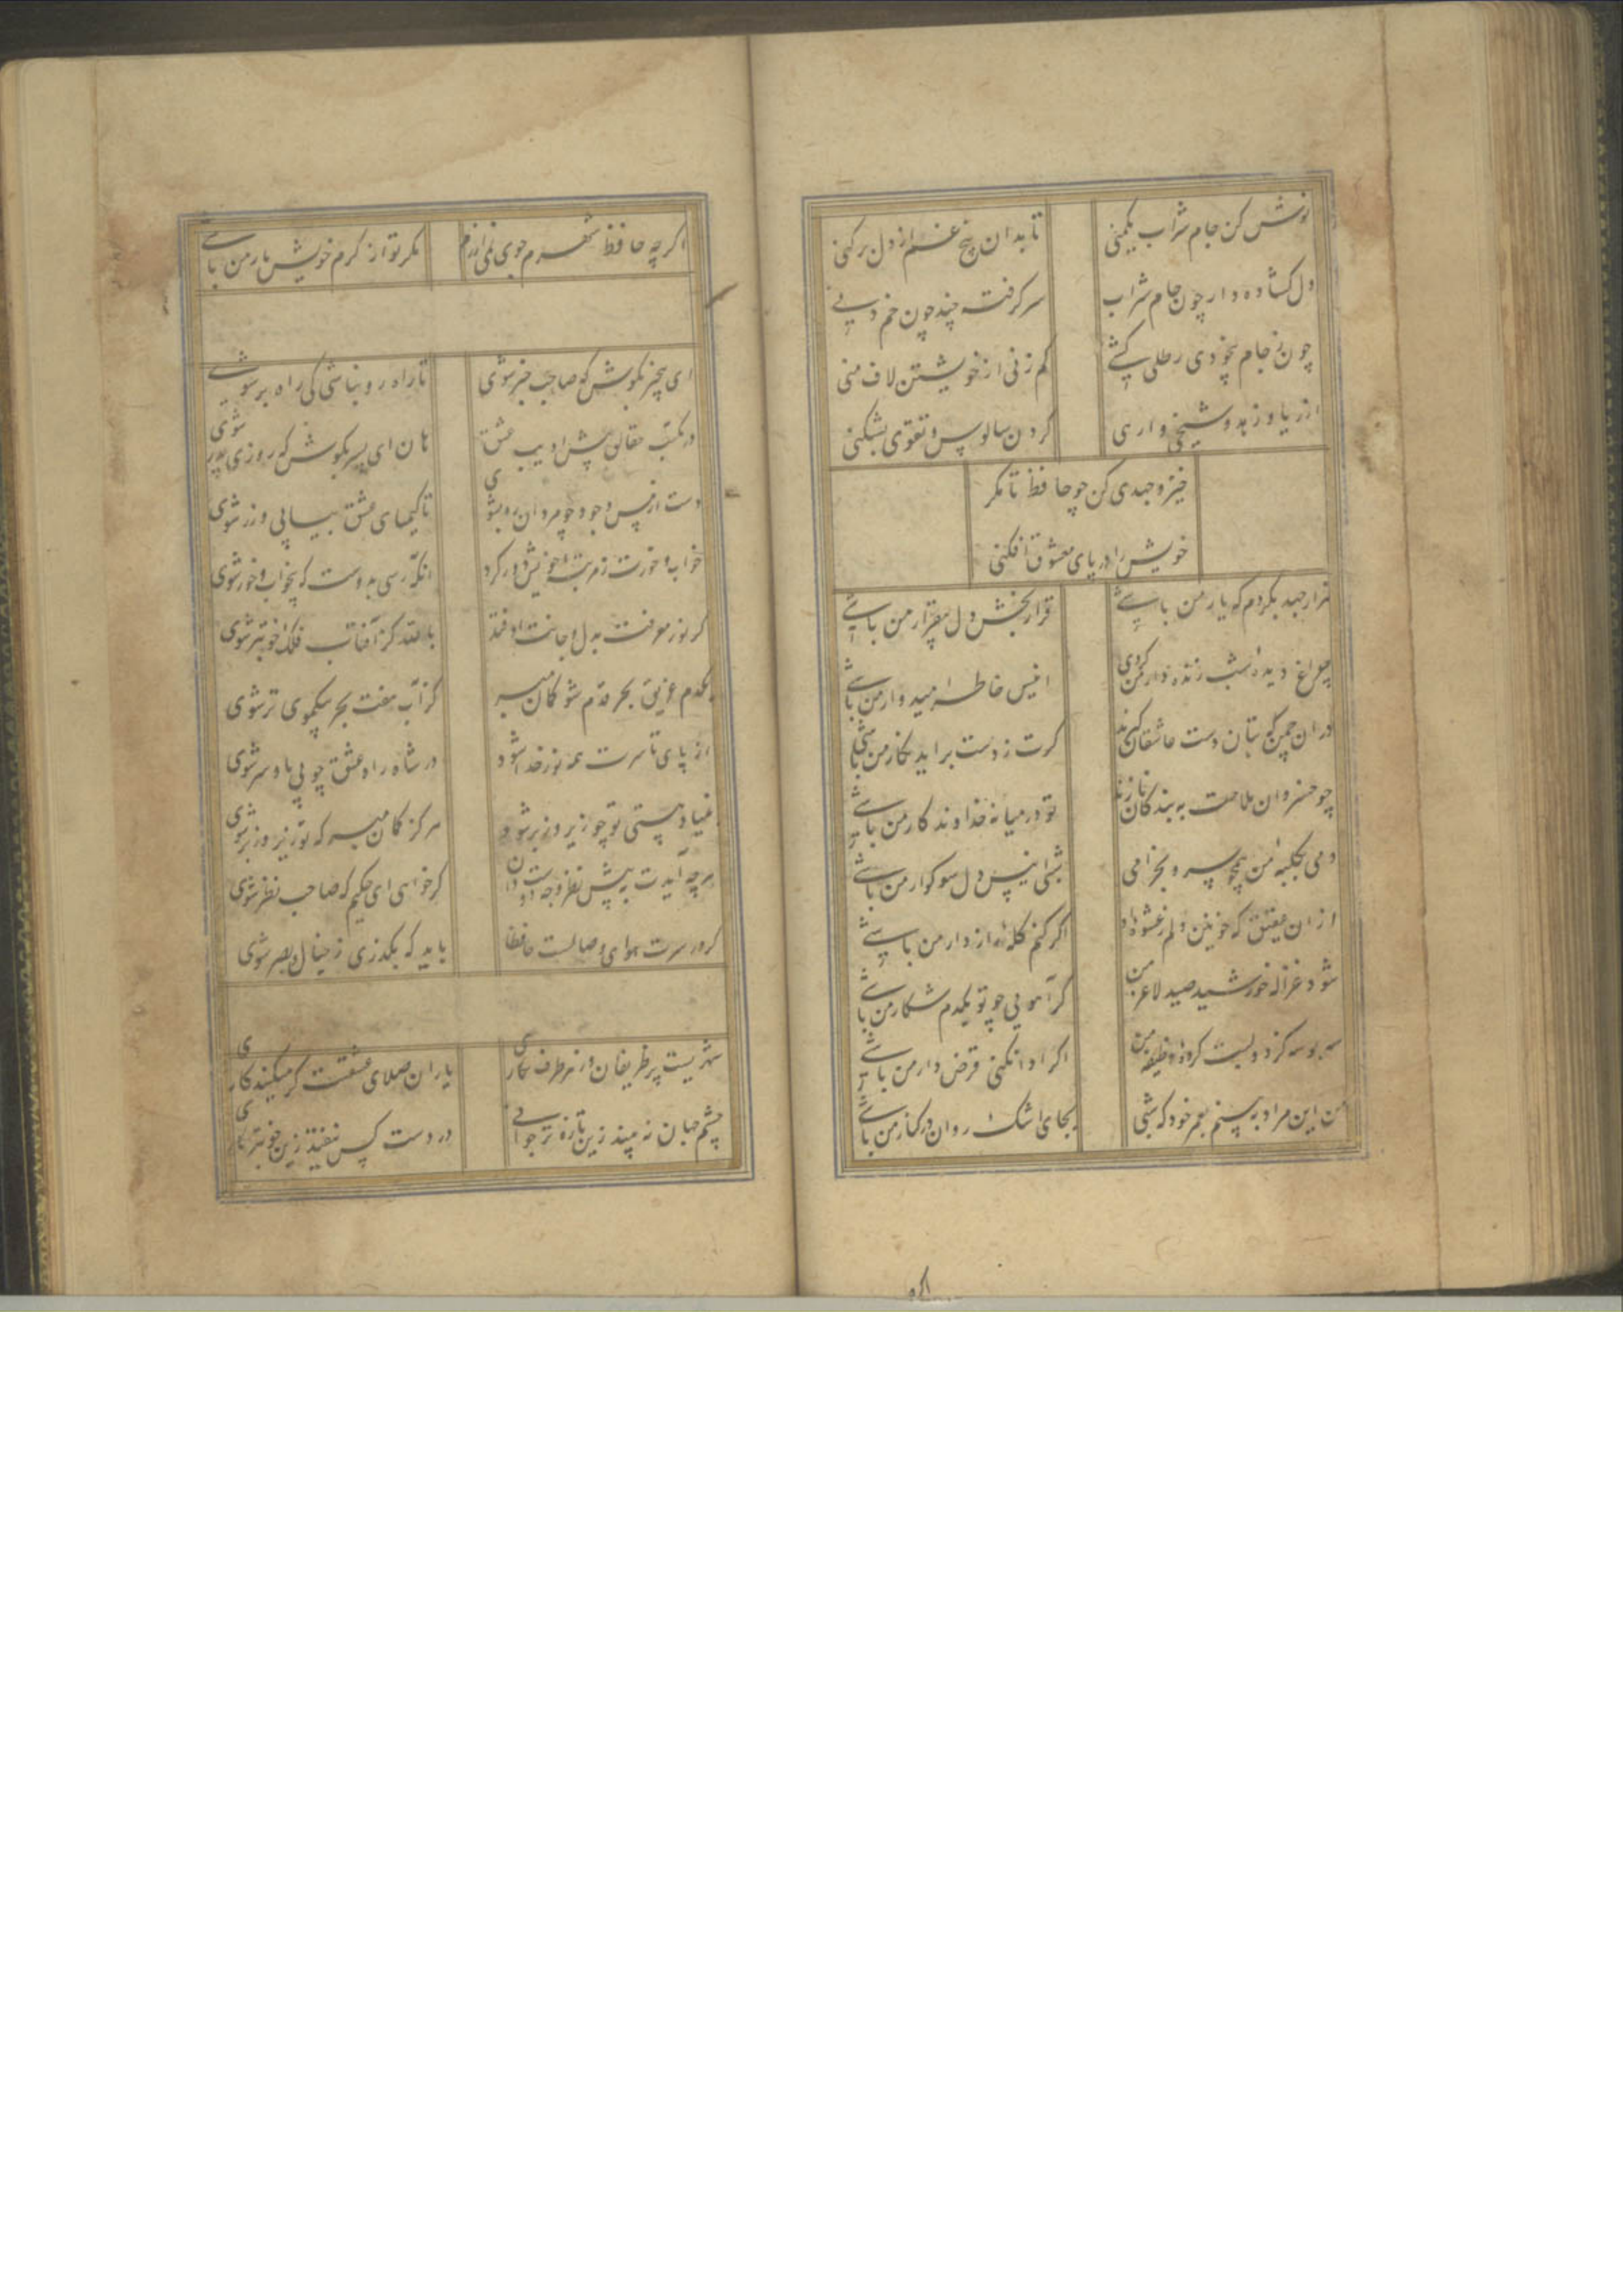 نوش کن جام شراب یکمنی تا بدان بیخ غم از دل برکنی
دل کشاده دار چون جام شراب سر گرفته چند چون خم دنی
چون ز جام بیخودی رطلی کشی کم زنی از خویشتن لاف منی
گردن سالوس و تقوی بشکنی
خیز و جهدی کن چو حافظ تا مگر
خویش را در پای معشوق افکنی
هزار جهد بکردم که یار من باشی قرار بخش دل بیقرار من باشی
چراغ دیده شب زنده دار من کردی انیس خاطر امیدوار من باشی
دران چمن که بتان دست عاشقان گیرند گرت ز دست براید نگار من باشی
چو خسروان ملاحت به بندگان نازند تو در میانه خداوندگار من باشی
شبی انیس دل سوکوار من باشی
ازان عقیق که خونین دلم ز عشوه او اگر کنم گله راز دار من باشی
شود غزاله خورشید صید لاغر من گر آهویی چو تو یکدم شکار من باشی
سه بوسه کز دو لبت کرده وظیفه من اگر ادا نکنی قرض دار من باشی
من این مراد به بینم بعمر خود که شبی بجای اشک روان در کنار من باشی
اگرچه حافظ شهرم جوی نمی ارزم مگر تو از کرم خویش یار من باشی
ای بیخبر بکوش که صاحب خبر شوی تا راه رو نباشی کی راه بر شوی
در مکتب حقایق پیش ادیب عشق هان ای پسر بکوش که روزی پدر شوی
دست از مس وجود چو مردان ره بشوی تا کیمیای عشق بیابی و زر شوی
خواب و خورت ز مرتبه خویش دور کرد آنگه رسی به دوست که بیخواب و خور شوی
گر نور معرفت به دل و جانت اوفتد بالله کز آفتاب فلک خوبتر شوی
یکدم غریق بحر قدم شو گمان مبر کز آب هفت بحر بیکموی تر شوی
از پای تا سرت همه نور خدا شود در شاه راه عشق چو بی پا و سر شوی
بنیاد هستی تو چو زیر و زبر شود هرگز گمان مبر که تو زیر و زبر شوی
گر خواهی ای حکیم که صاحب نظر شوی
گر در سرت هوای وصالست حافظا باید که بگذری ز خیال و بصر شوی
شهریست پر ظریفان وز هر طرف نگاری یاران صلای عشقست گر میکنید کاری
چشم جهان نه بیند زین تازه تر جوانی در دست کس نیفتد زین خوبتر نگاری